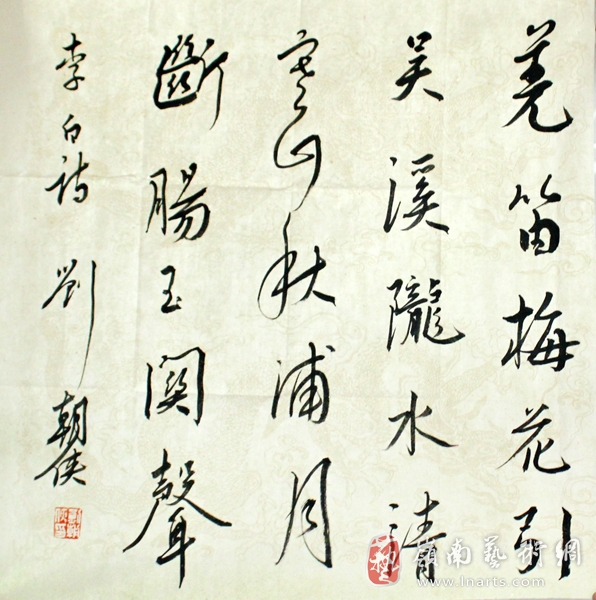 羌笛梅花引
吴溪隴水清
寒山秋浦月
斷腸玉関聲
李白詩 劉朝侠
嶺南藝術網
www.lnarts.com